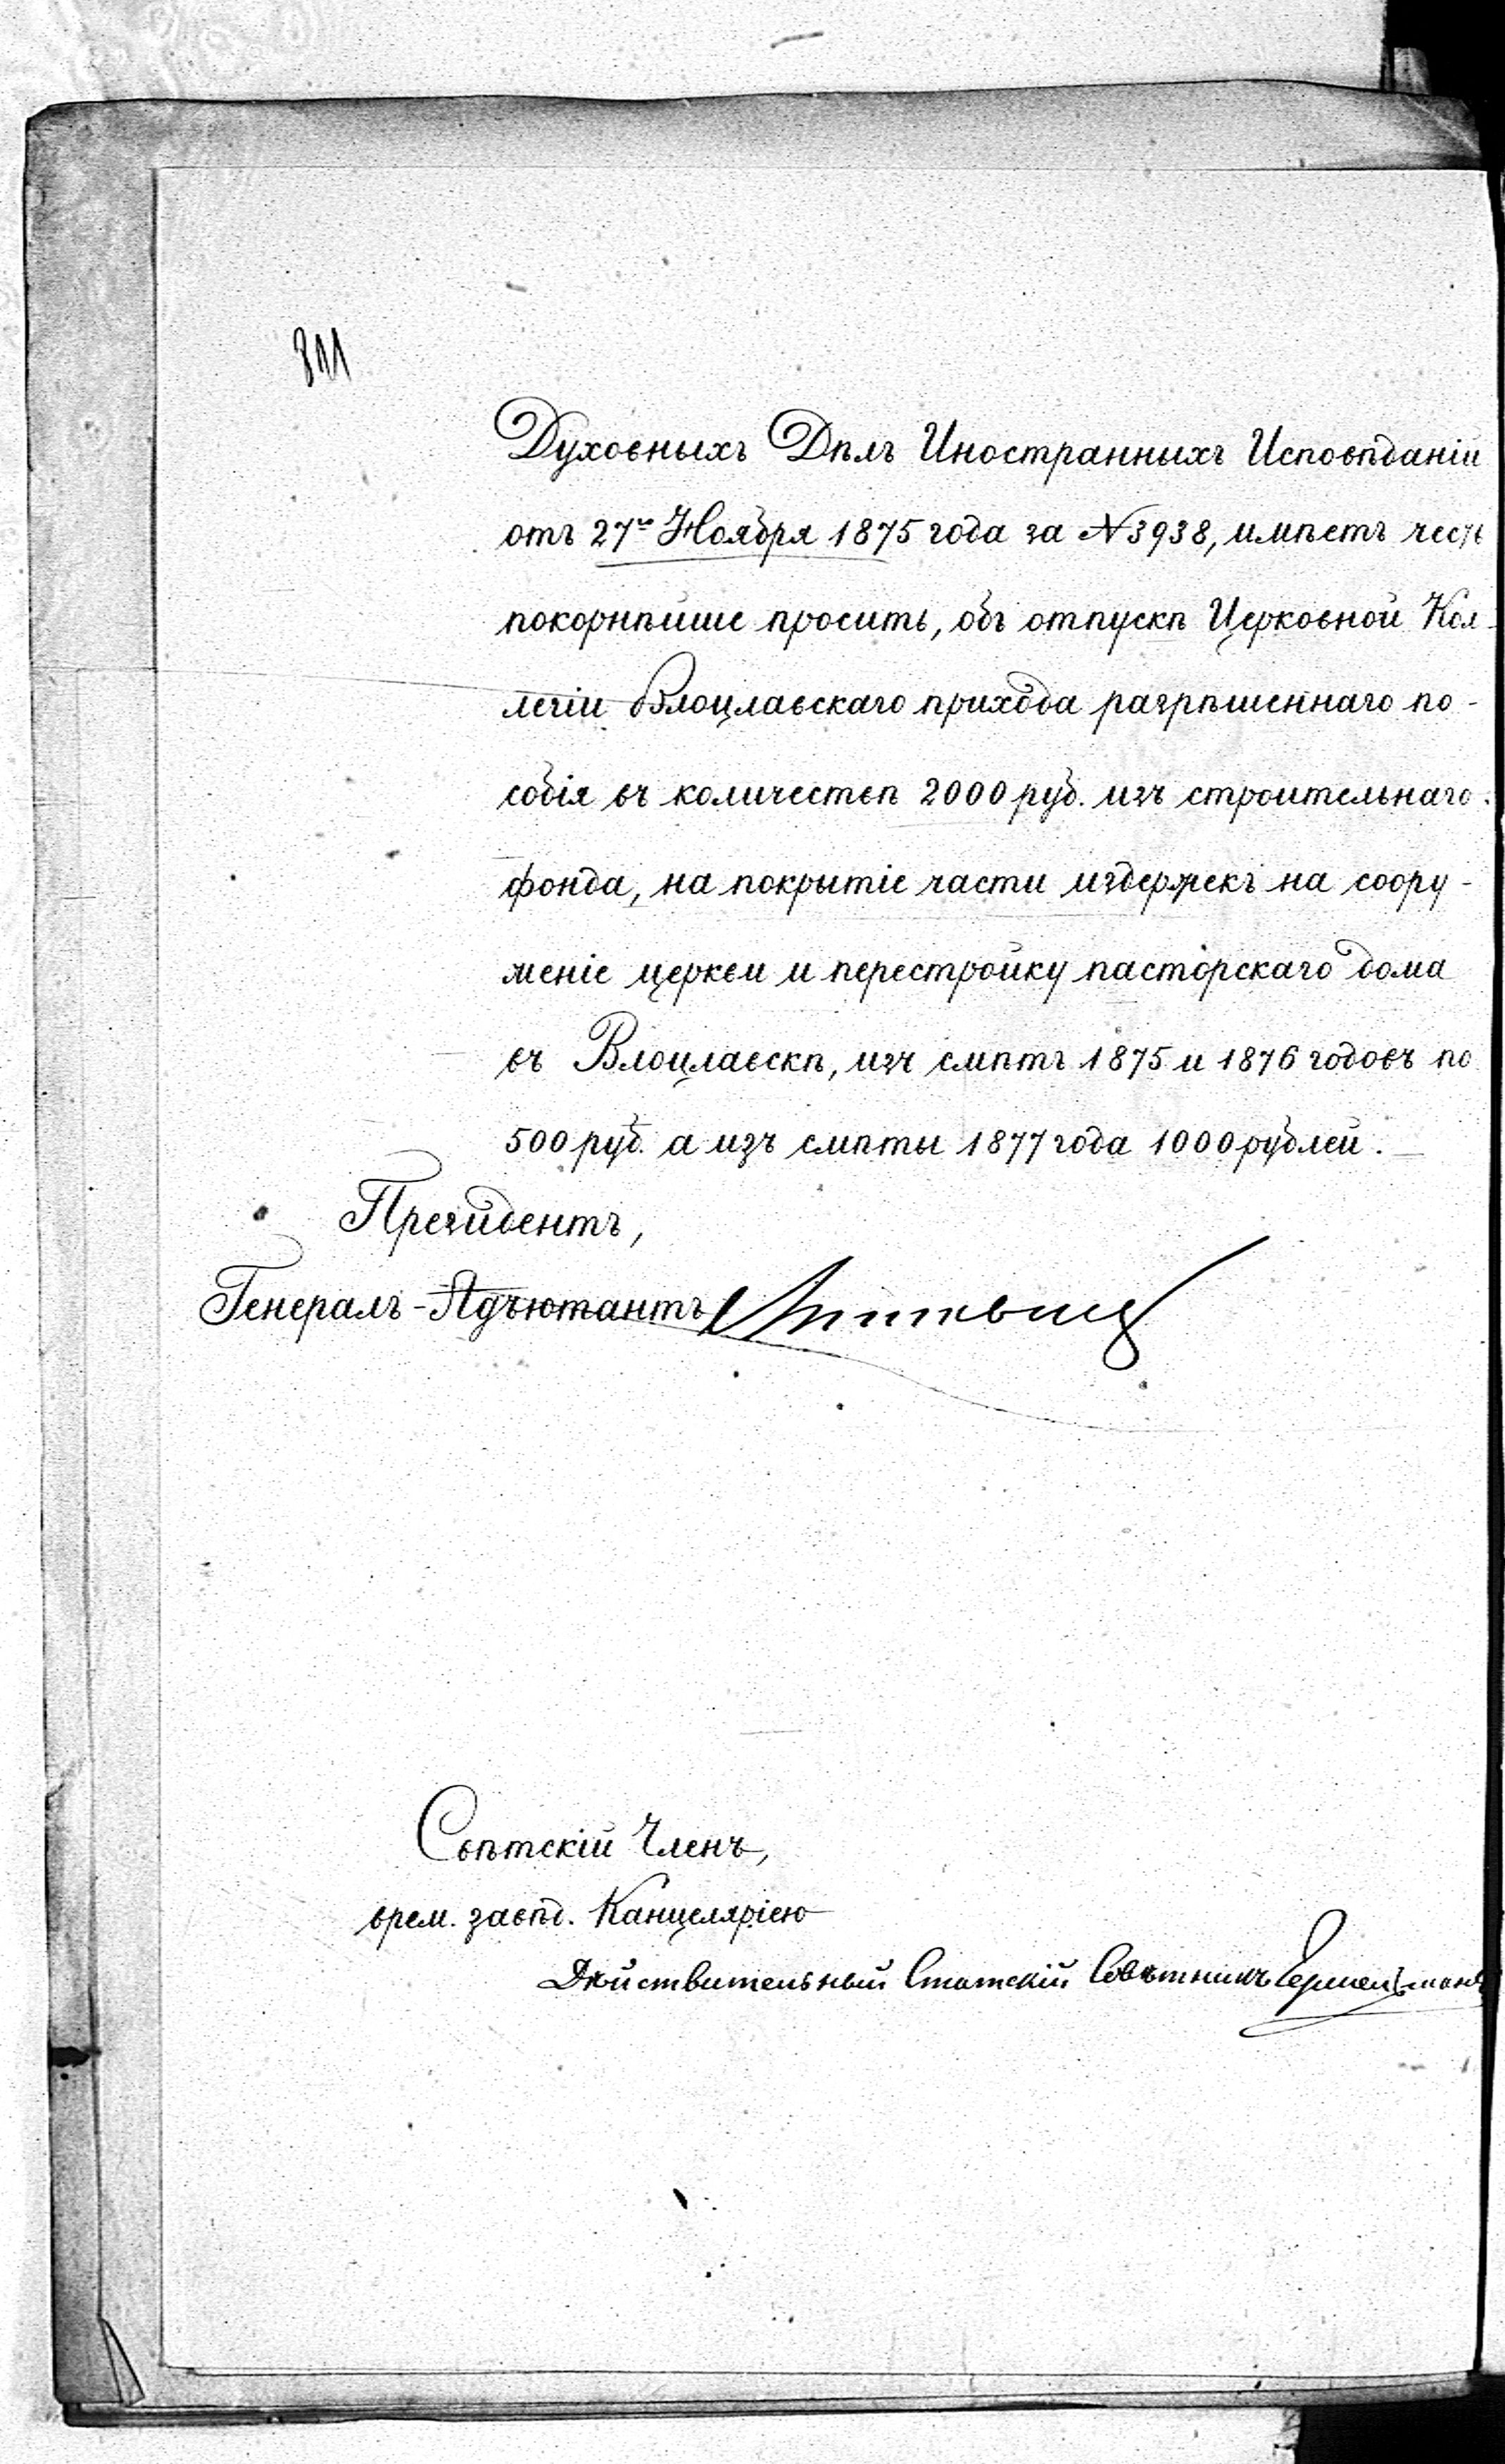 811
Духовныхъ Дѣлъ Иностранныхъ Исповѣданій
отъ 27го Ноября 1875 года за №3938, имѣетъ честь
покорнѣйше просить, объ отпускѣ Церковной Кол-
легіи Влоцлавскаго прихода разрѣшеннаго по-
собія въ количествѣ 2000 руб. изъ строительнаго
фонда, на покрытіе части издержекъ на соору-
женіе церкви и перестройку пасторскаго дома
въ Влоцлавскѣ, изъ смѣтъ 1875 и 1876 годовъ по
500 руб. а изъ смѣты 1877 года 1000 рублей.
Президентъ,
Генералъ-Адъютантъ
Свѣтскій Членъ,
врем. завѣд. Канцеляріею
Дѣйствительный Статскій Совѣтникъ